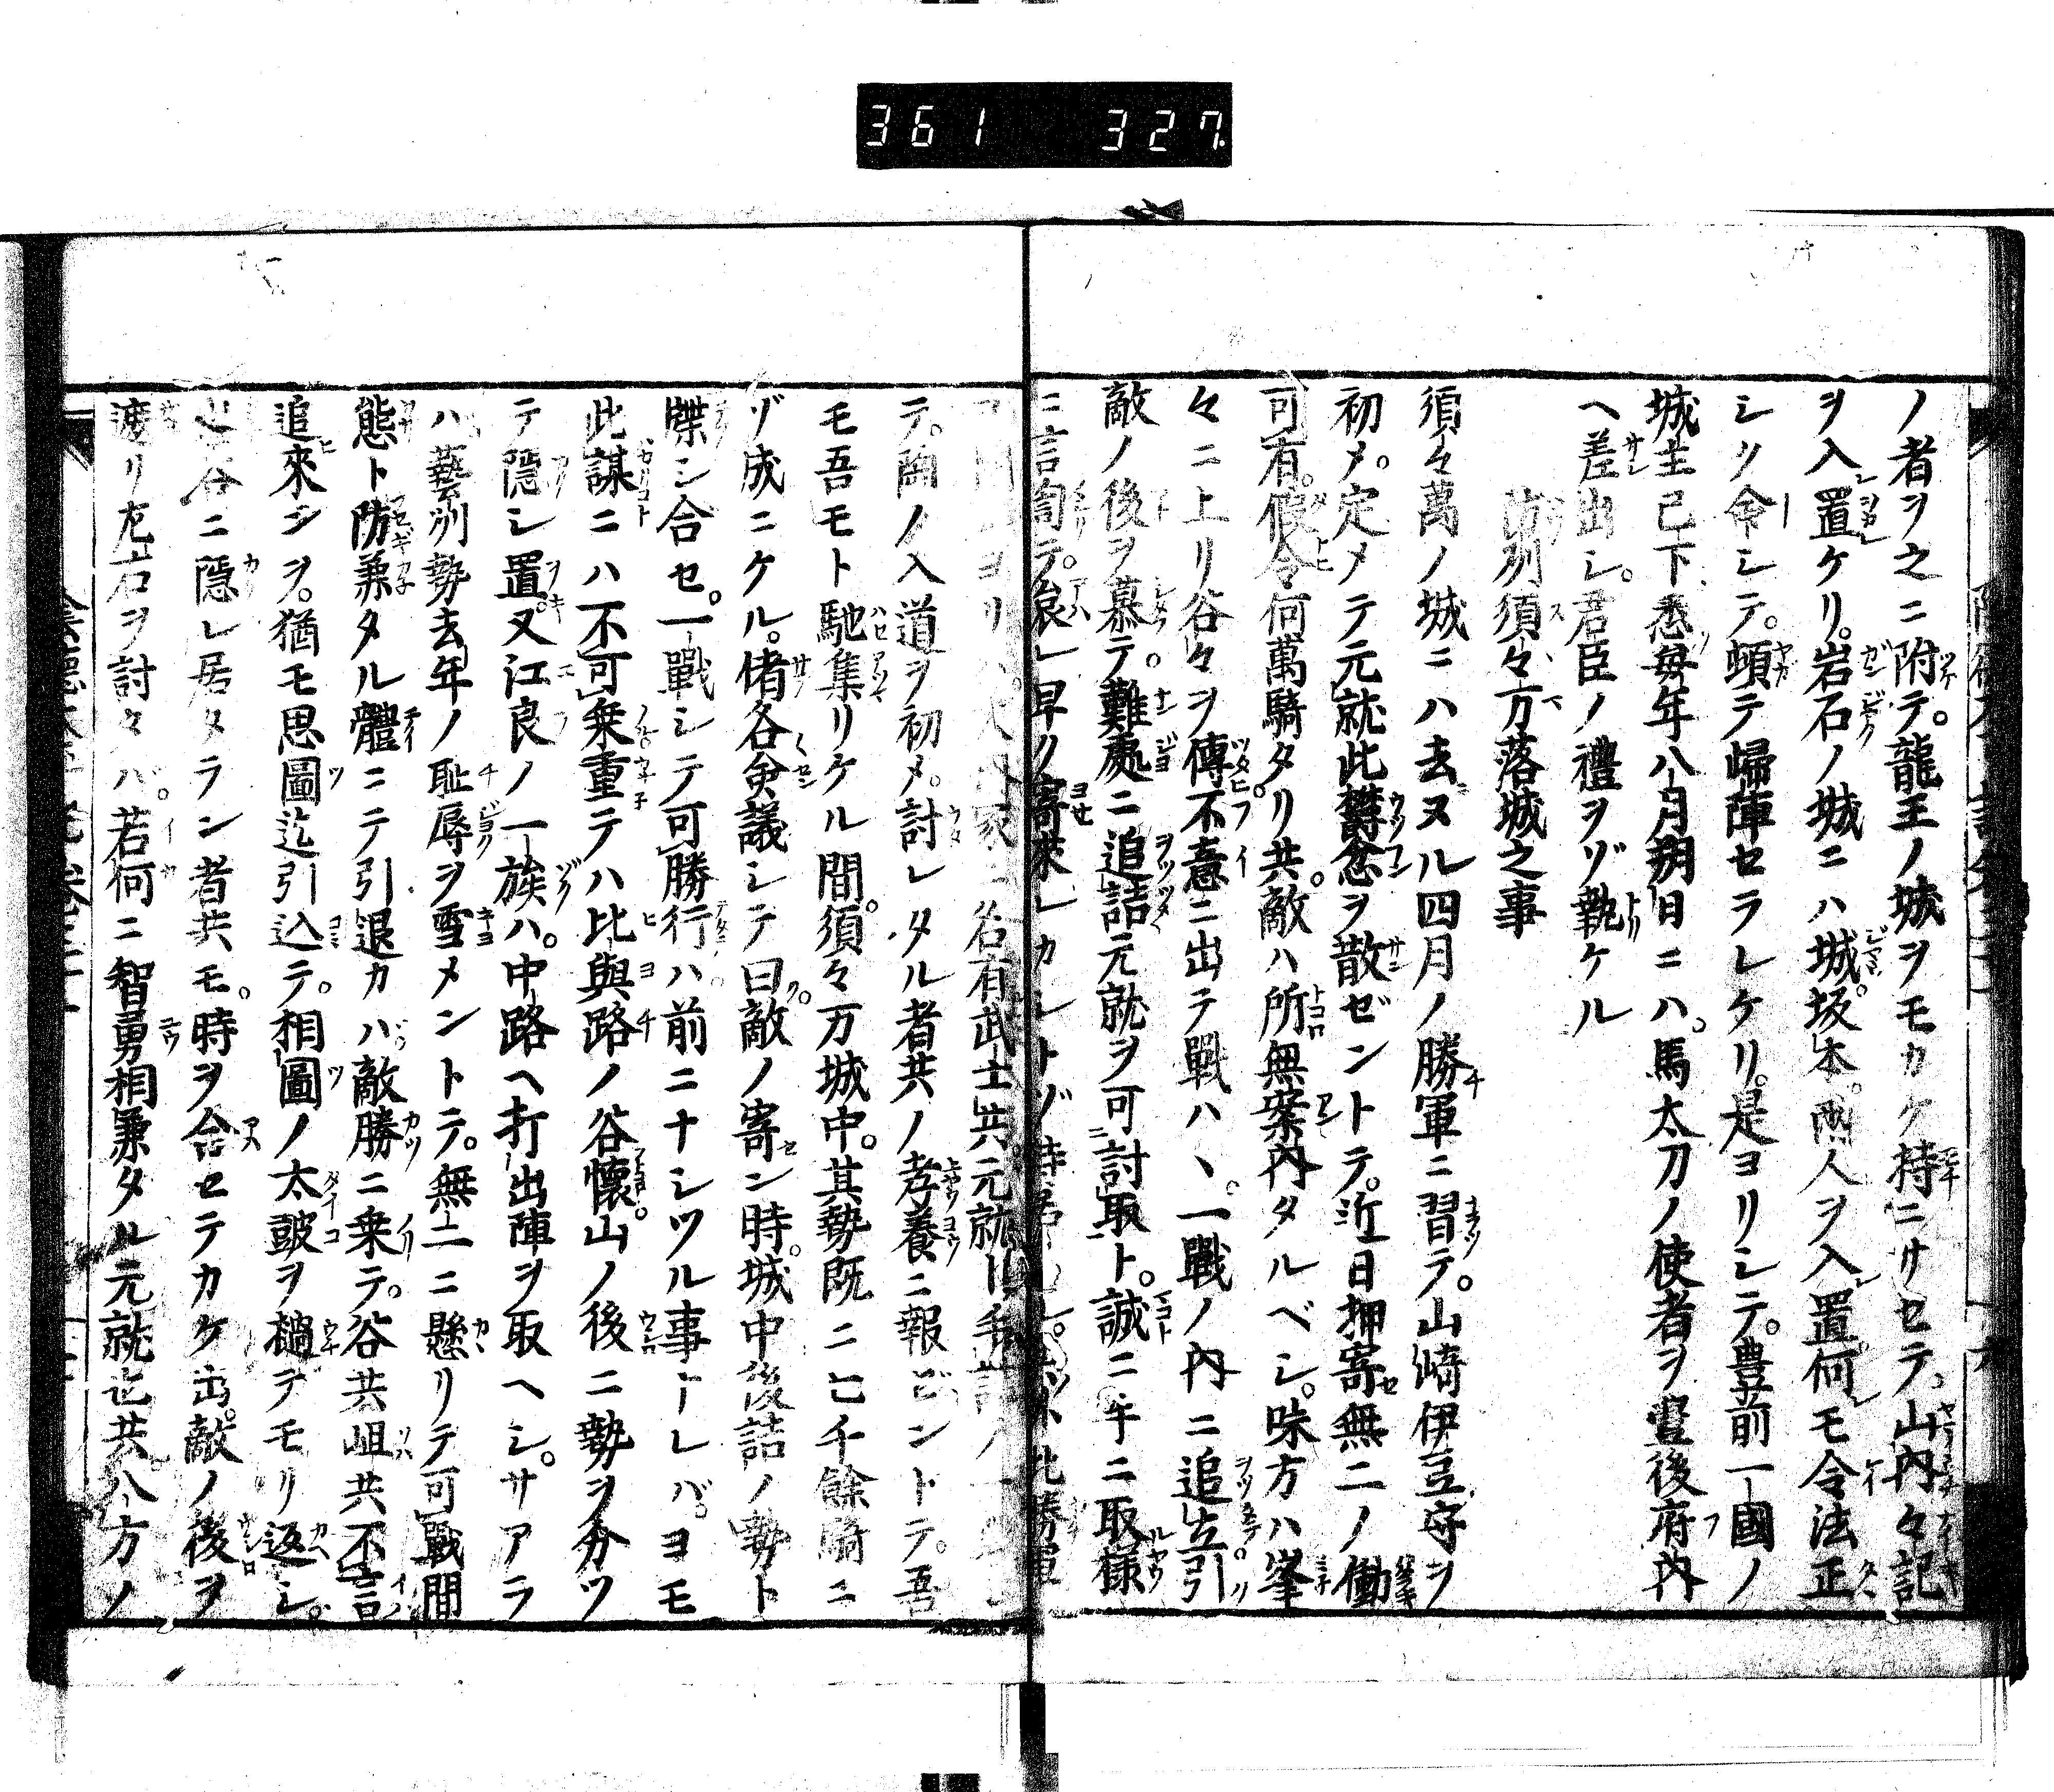 361 327
ノ者ヲ之ニ附テ。龍王ノ城ヲモカケ持ニサセテ、山内々記
ヲ入置ケリ。岩石ノ城ニハ城。坂本。兩人ヲ入置何モ令法正
シク令シテ。頓テ歸陣セラレケリ。是ヨリシテ。豊前一國ノ
城主已下悉毎年八月朔日ニハ。馬太刀ノ使者ヲ豐後府内
ヘ差出シ。君臣ノ禮ヲゾ執ケル
防州須々万落城之事
須々萬ノ城ニハ去ヌル四月ノ勝軍ニ習テ。山崎伊豆守ヲ
初メ。定メテ元就此欝念ヲ散ゼントテ。近日押寄無二ノ働
可有。假令何萬騎タリ共。敵ハ所無案内タルベシ。味方ハ峯
々ニ上リ谷々ヲ傳。不意ニ出テ戰ハヽ。一戰ノ内ニ追立引
敵ノ後ヲ慕テ。難處ニ追詰元就ヲ可討取ト。誠ニ手ニ取様
ニ言 テ。哀レ早ク寄來レカシトゾ待
ヨリ 名有武士共元就
テ。陶ノ入道ヲ初メ。討レタル者共ノ孝養ニ報ビントテ。吾
モ吾モト馳集リケル間。須々万城中。其勢既ニ七千餘騎ニ
ゾ成ニケル。偖各僉議シテ曰。敵ノ寄ン時。城中後詰ノ勢ト
牒シ合セ。一戰シテ可勝行ハ前ニナシツル事ナレバ。ヨモ
此謀ニハ不可乗重テハ比與路ノ谷懷。山ノ後ニ勢ヲ分ツ
テ隱シ置。又江良ノ一族ハ。中路ヘ打出陣ヲ取ヘシ。サアラ
ハ藝州勢去年ノ耻辱ヲ雪メントテ。無二ニ懸リテ可戰間
態ト防兼タル體ニテ引退カハ。敵勝ニ乗テ。谷共岨共不言
追來ンヲ。猶モ思圖迄引込テ。相圖ノ太皷ヲ檛デモリ返シ。
谷ニ隱レ居タラン者共モ。時ヲ合セテカケ出。敵ノ後ヲ
渡リ左右ヲ討々ハ。若何ニ智勇相兼タル元就也共八方ノ